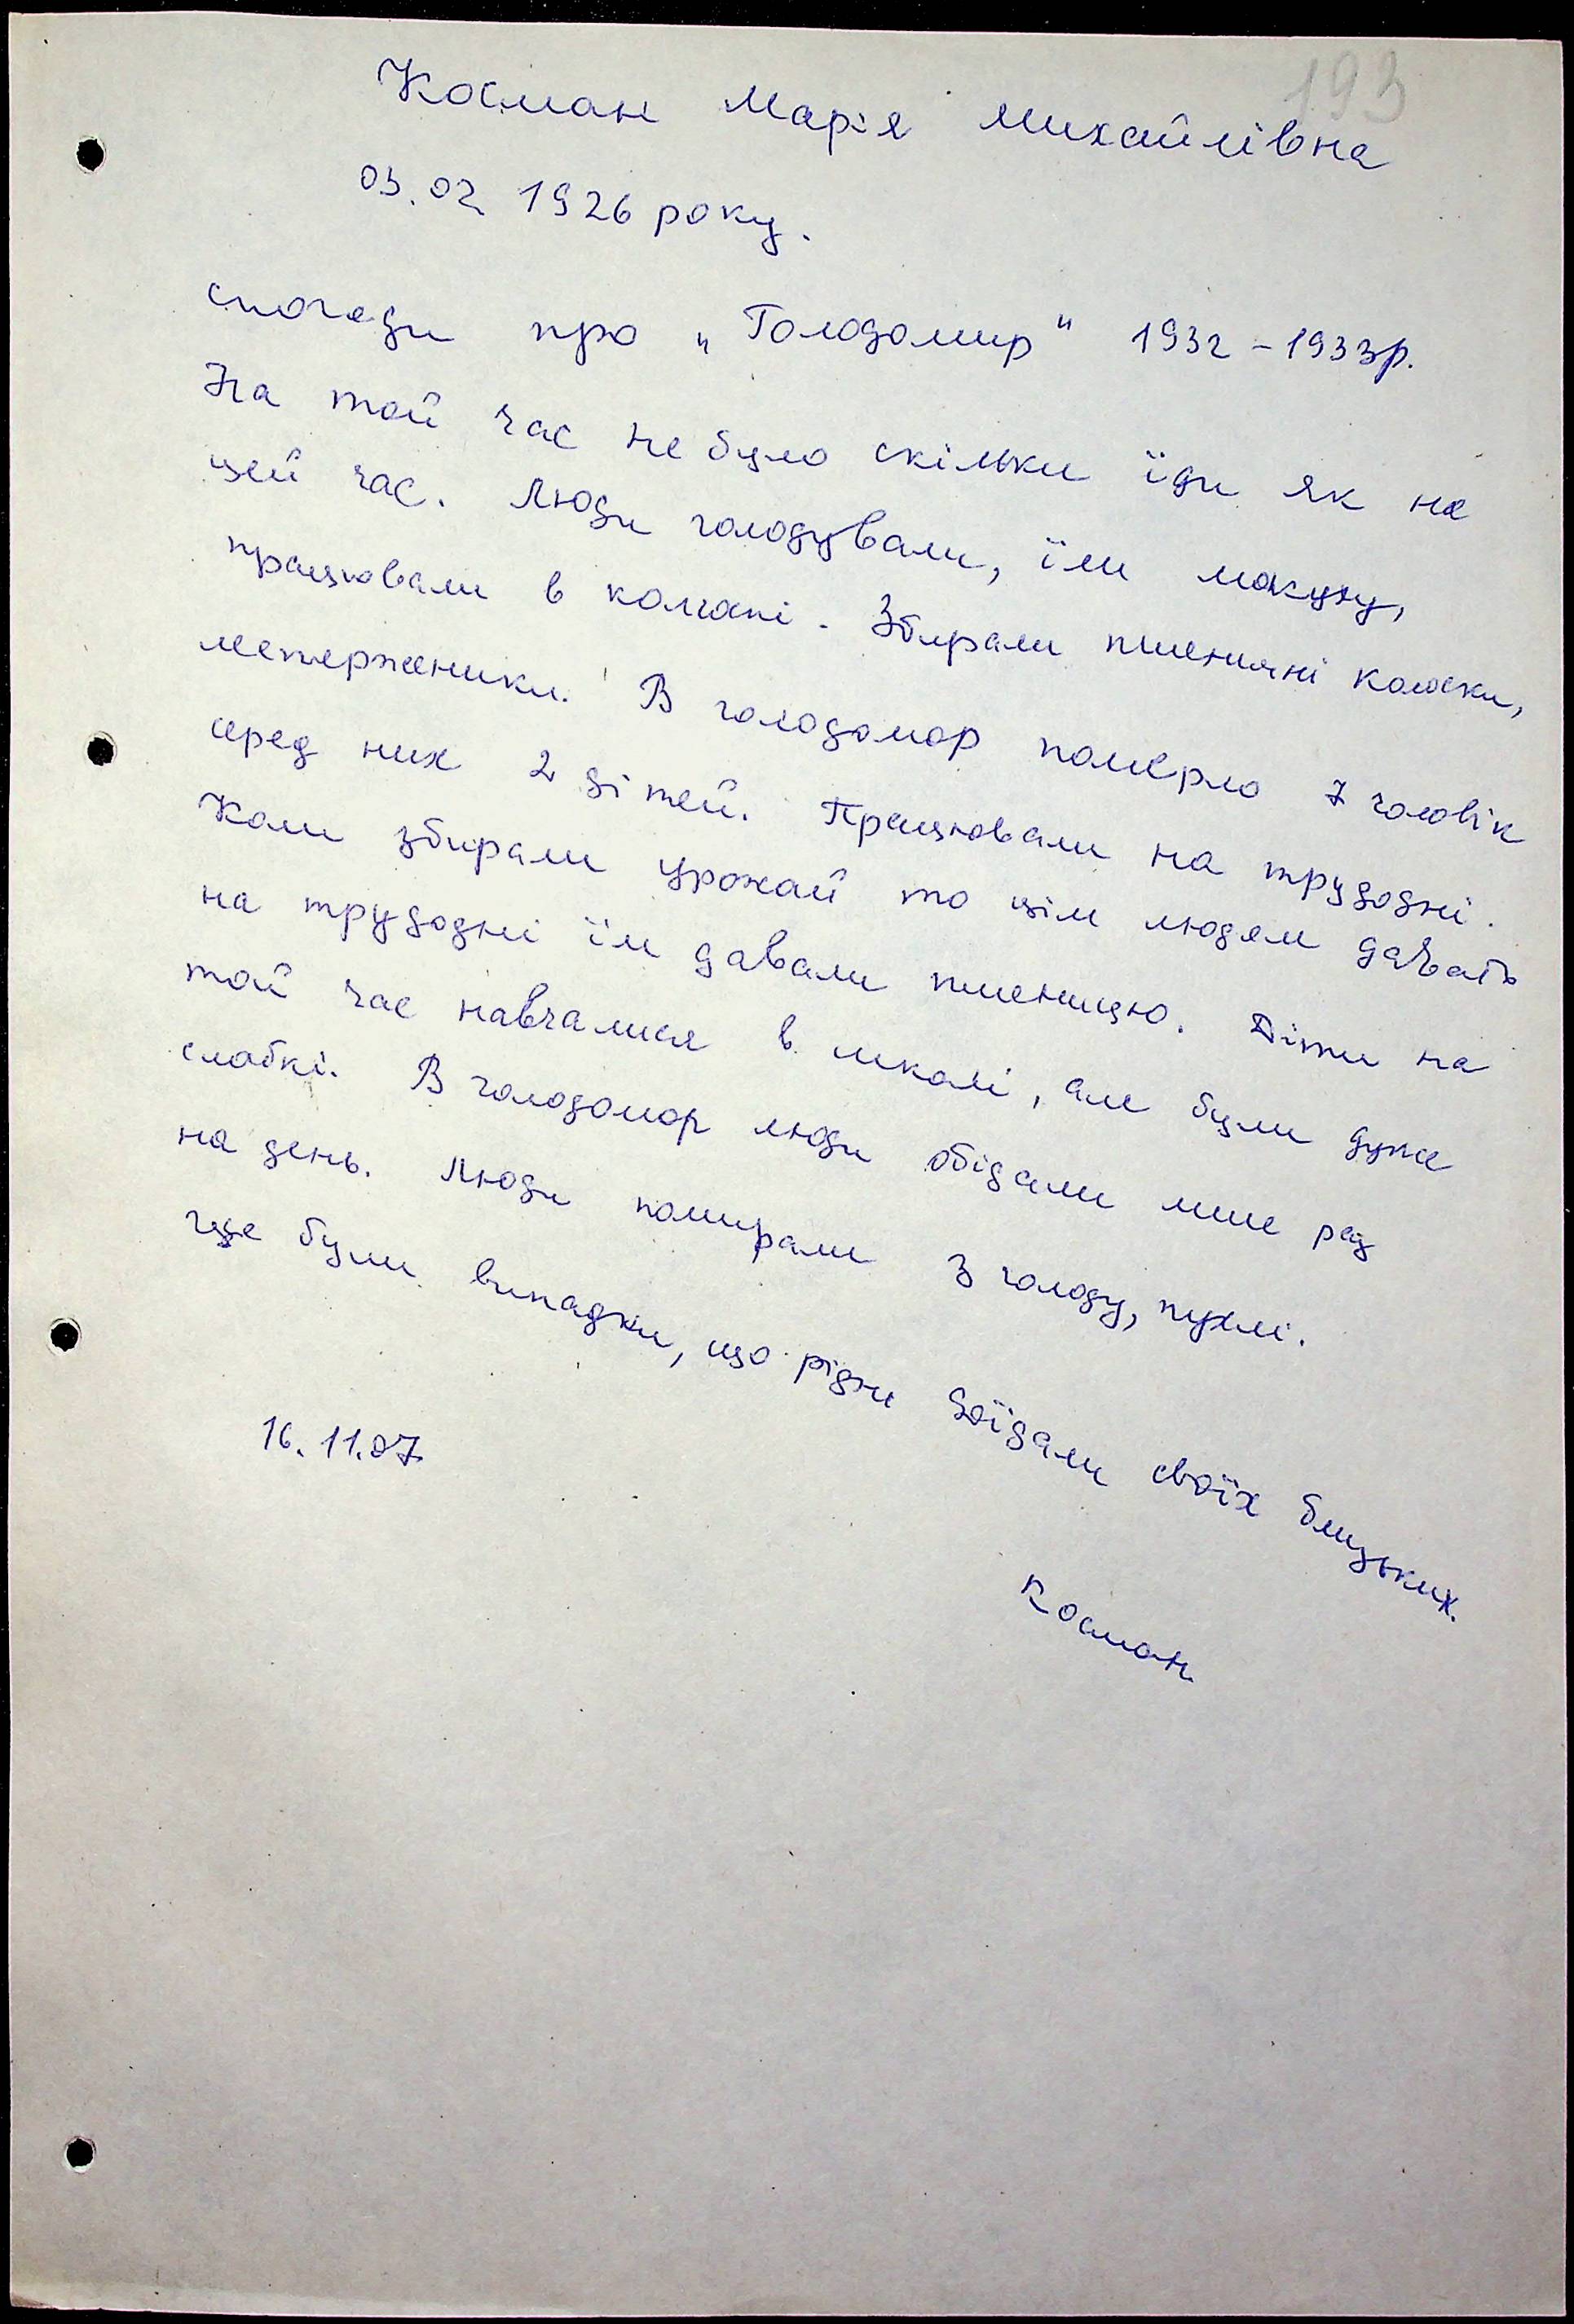 193
Косман Марія Михайлівна
03.02 1926 року.
спогади про „Голодомир" 1932-1933р.
На той час не було скільки їди як на
цей час. Люди голодували, їли макуху,
працювали в колгопі. Збирали пшеничні колоски,
меперженики. В голодомор померло 7 чоловік
серед них 2 дітей. Працювали на трудодні.
Коли збирали урожай то цім людям давать
на трудодні їм давали пшеницю. Діти на
той час навчалися в школі, але були дуже
слабкі. В голодомор люди обідали лише раз
на день. Люди помирали з голоду, пухлі.
ще були випадки, що рідни доїдали своїх близьких.
16.11.07
Косман